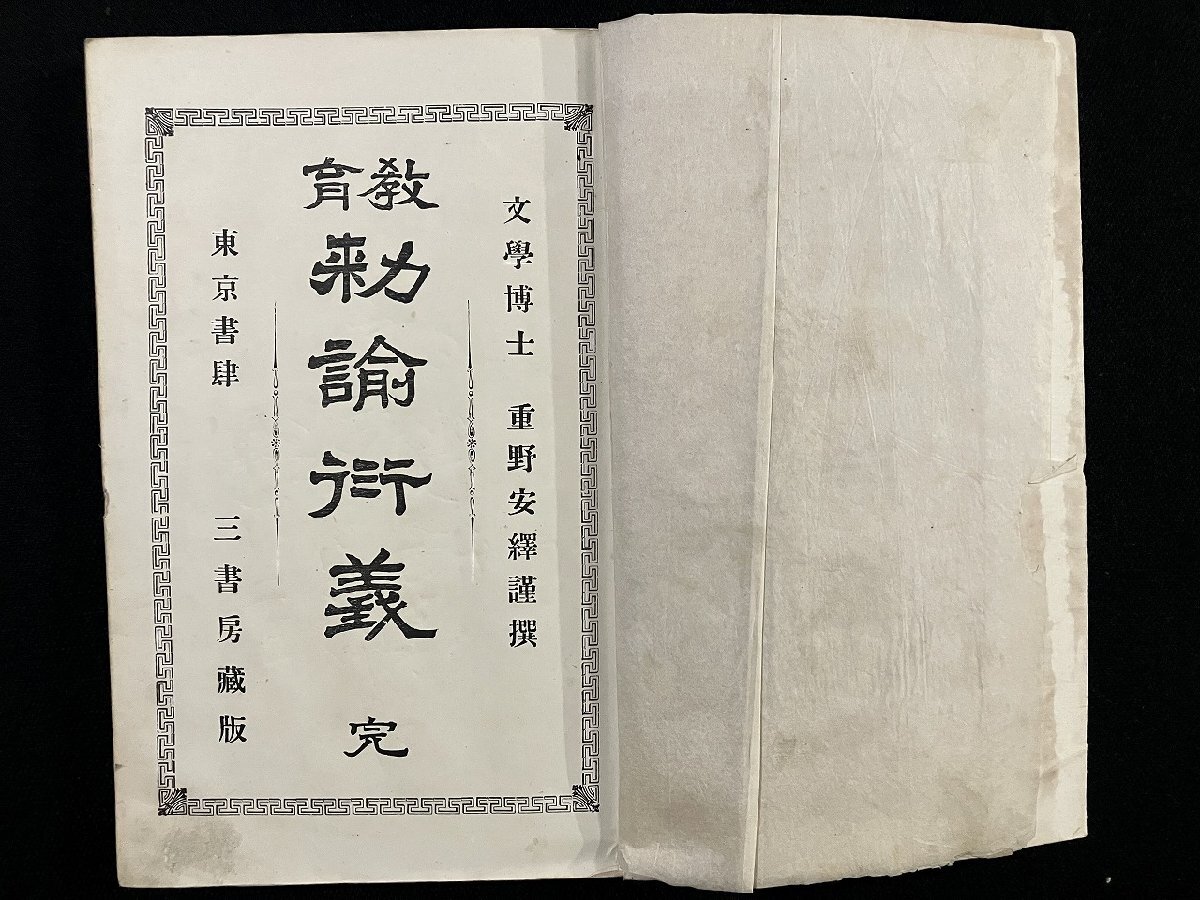 文學博士 重野安繹謹撰
教育勅諭衍義 完
東京書肆 三書房藏版